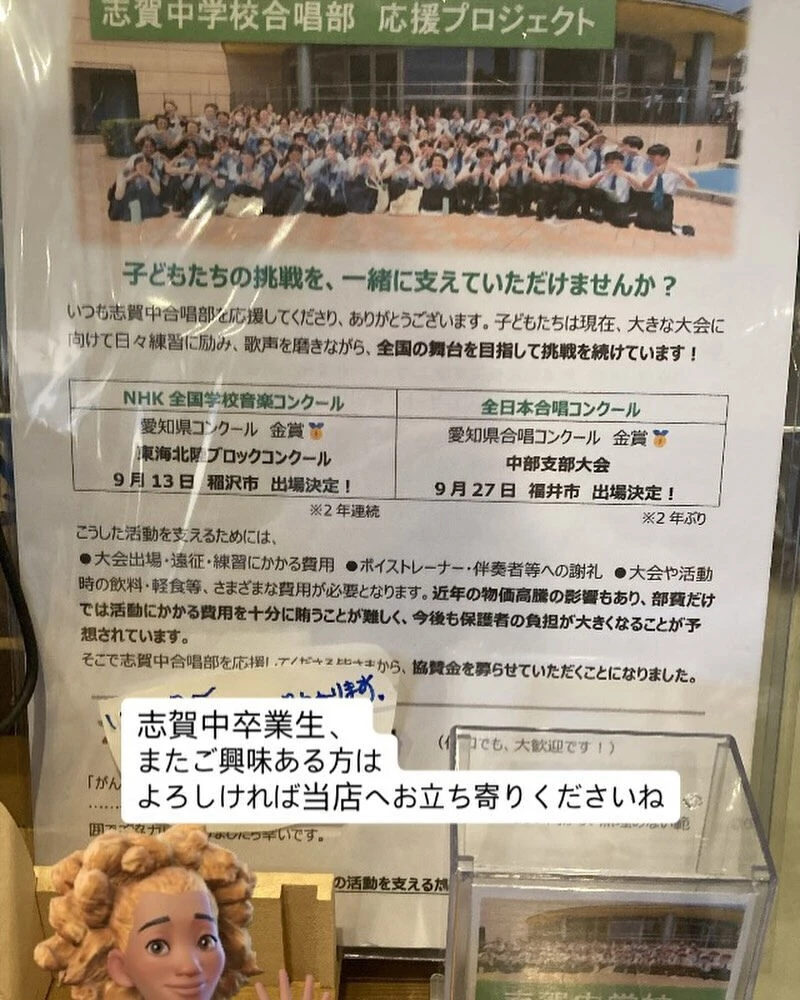 志賀中学校合唱部 応援プロジェクト
子どもたちの挑戦を、一緒に支えていただけませんか?
いつも志賀中合唱部を応援してくださり、ありがとうございます。子どもたちは現在、大きな大会に
向けて日々練習に励み、歌声を磨きながら、全国の舞台を目指して挑戦を続けています!
NHK 全国学校音楽コンクール
愛知県コンクール 金賞🥇
東海北陸ブロックコンクール
9月13日 稲沢市 出場決定!
※2年連続
全日本合唱コンクール
愛知県合唱コンクール 金賞🥇
中部支部大会
9月27日 福井市 出場決定!
※2年ぶり
こうした活動を支えるためには、
●大会出場・遠征・練習にかかる費用 ●ボイストレーナー・伴奏者等への謝礼 ●大会や活動
時の飲料・軽食等、さまざまな費用が必要となります。近年の物価高騰の影響もあり、部費だけ
では活動にかかる費用を十分に賄うことが難しく、今後も保護者の負担が大きくなることが予
想されています。
そこで志賀中合唱部を応援してくださる皆さまから、協賛金を募らせていただくことになりました。
でも、大歓迎です!)
志賀中卒業生、
またご興味ある方は
よろしければ当店へお立ち寄りくださいね
「がん
幸いです。
の活動を支えるた